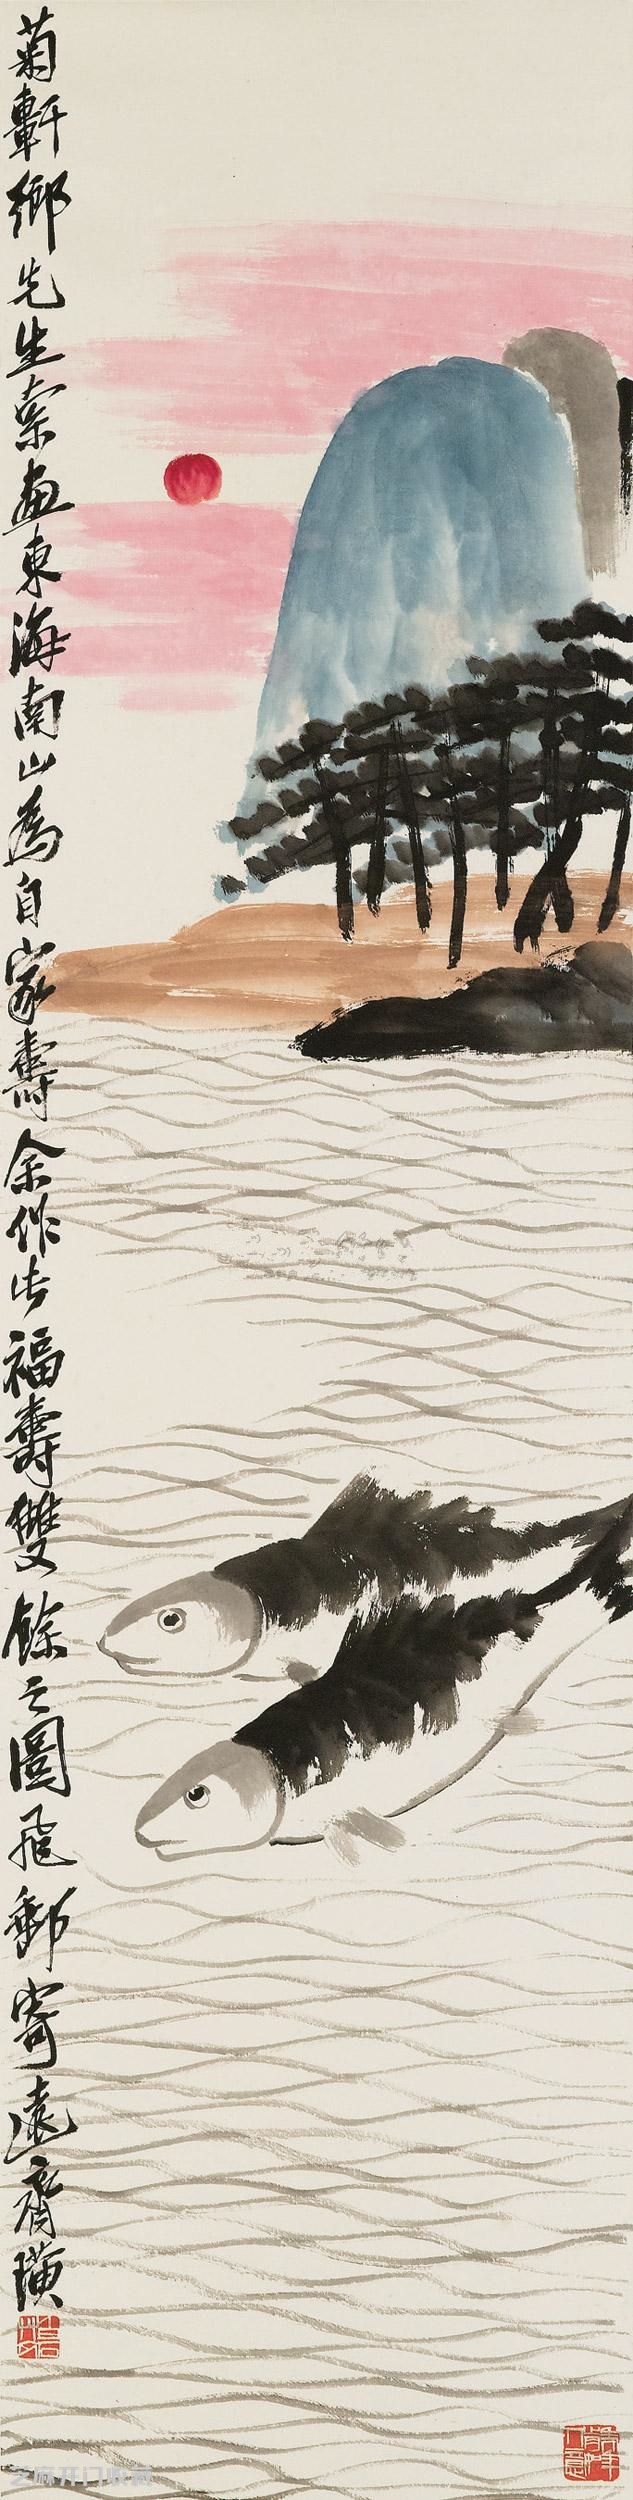 菊軒鄉先生索畫東海南山為自家壽余作此福壽雙餘之圖飛郵寄遠齊璜
芝麻开门收藏